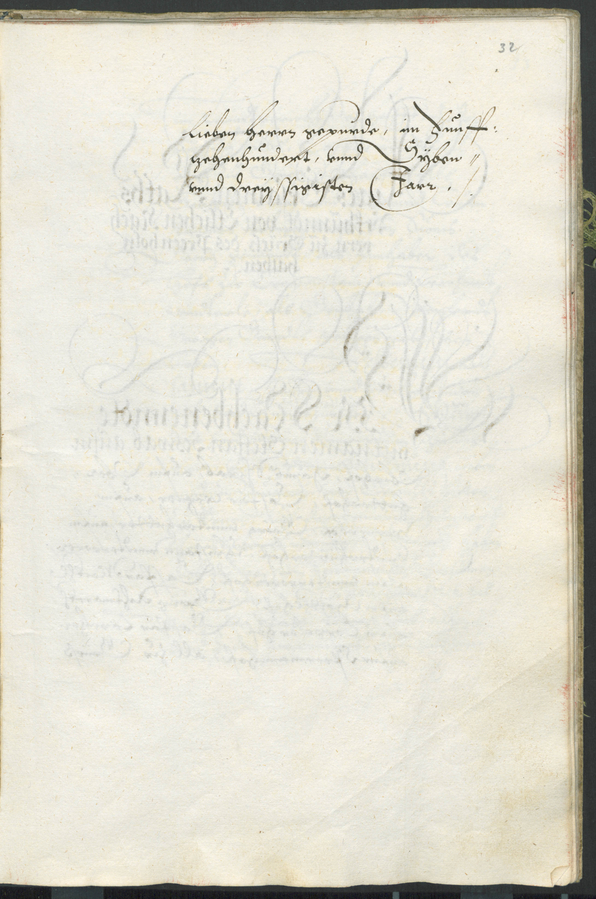 32
lieben herrn gepurde, im Funff-
zehenhundert, vnnd Syben
vnnd dreyssigisten Jarr.